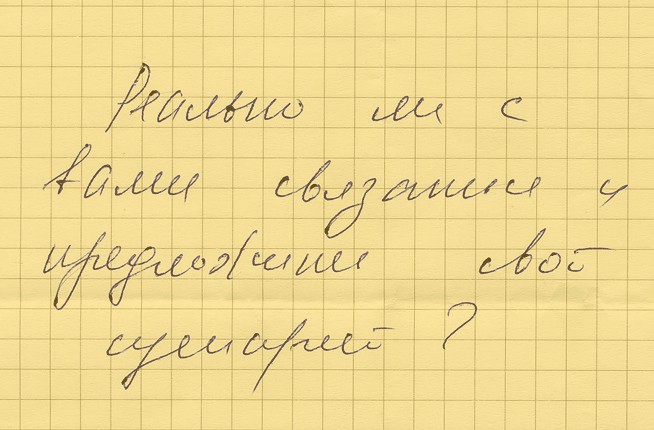 Реально ли с
вами связаться и
предложить свой
сценарий?